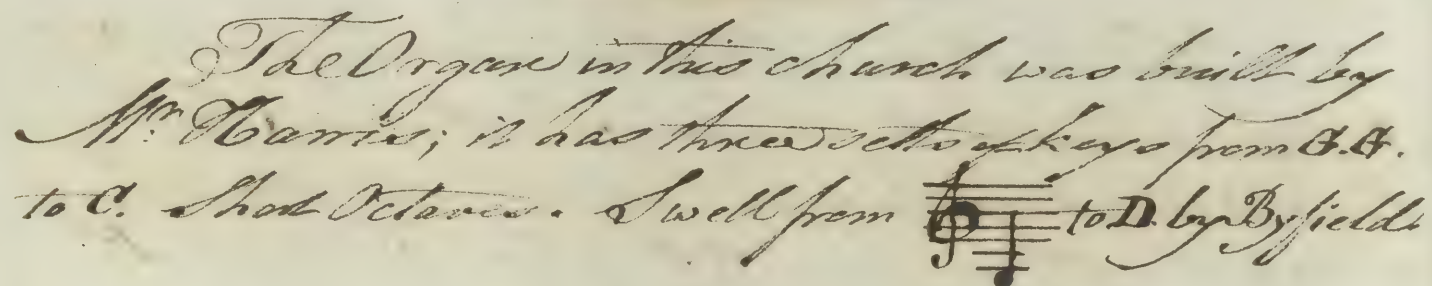 The Organ in this church was built by
Mr. Harris; it has three setts of keys from G.G.
to C. Short Octaves. Swell from to D. by Byfield.